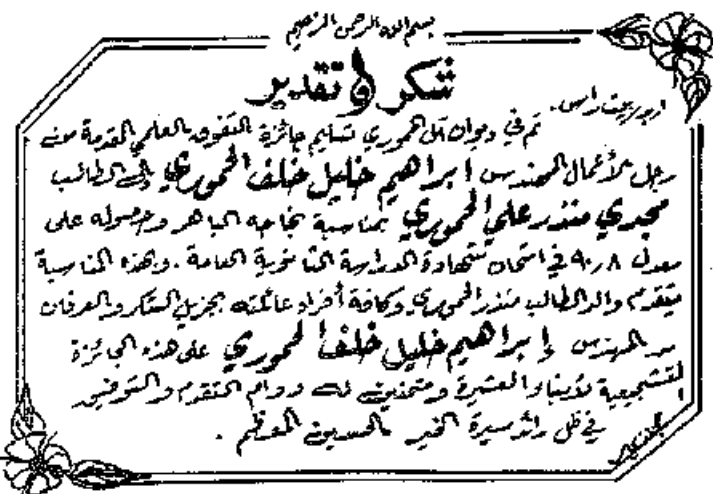 بسم الله الرحمن الرحيم
شكر و تقدير
اربد - بيت راس -
تم في ديوان آل الحموري تسليم جائزة التفوق العلمي المقدمة من
رجل الأعمال المهندس ابراهيم خليل خلف الحموري إلى الطالب
مجدي منذر علي الحموري بمناسبة نجاحه الباهر وحصوله على
معدل ٩٠٫٨ في امتحان شهادة الدراسة الثانوية العامة . وبهذه المناسبة
يتقدم والد الطالب منذر الحموري وكافة أفراد عائلته بجزيل الشكر والعرفان
من المهندس إبراهيم خليل خلف الحموري على هذه الجائزة
التشجيعية لأبناء العشيرة ومتمنين له دوام التقدم والتوفيق
في ظل رائد مسيرة الخير الحسين المعظم .